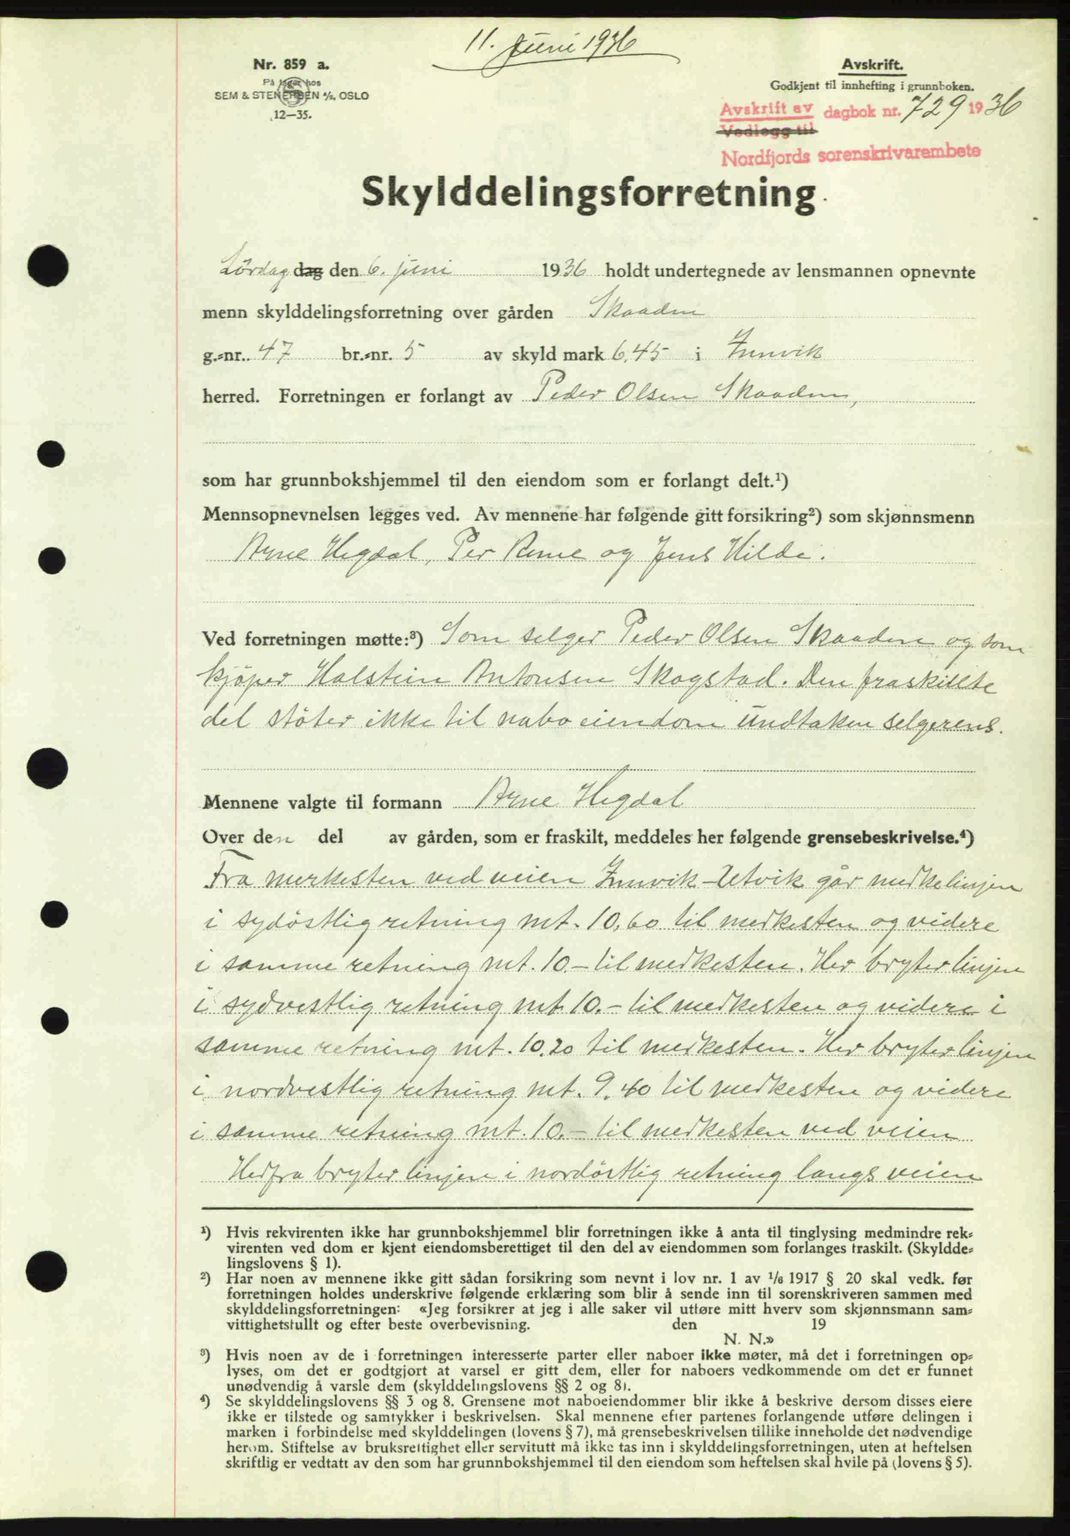 11. Juni 1936
Nr. 859 a.
På lager hos
SEM & STENERSEN A/S, OSLO
12—35.
Avskrift.
Godkjent til innhefting i grunnboken.
Avskrift av dagbok nr. 729 1936
Vedlegg til
Nordfjords sorenskrivarembete
Skylddelingsforretning
Lördag dag den 6. juni 1936 holdt undertegnede av lensmannen opnevnte
menn skylddelingsforretning over gården Skaaden
g.=nr. 47 br.=nr. 5 av skyld mark 6,45 i Innvik
herred. Forretningen er forlangt av Peder Olsen Skaaden,
som har grunnbokshjemmel til den eiendom som er forlangt delt.¹)
Mennsopnevnelsen legges ved. Av mennene har følgende gitt forsikring²) som skjønnsmenn
Arne Hegdal, Per Rime og Jens Hilde.
Ved forretningen møtte:³) Som selger Peder Olsen Skaaden og som
kjöper Halstein Antonsen Skogstad. Den fraskillte
del stöter ikke til naboeiendom undtaken selgerens.
Mennene valgte til formann Arne Hegdal
Over den del av gården, som er fraskilt, meddeles her følgende grensebeskrivelse.⁴)
Fra merkesten ved veien Innvik-Utvik går merkelinjen
i sydöstlig retning mt. 10,60 til merkesten og videre
i samme retning mt. 10.- til merkesten. Her bryter linjen
i sydvestlig retning mt 10.- til merkesten og videre i
samme retning mt. 10,20 til merkesten. Her bryter linjen
i nordvestlig retning mt. 9,40 til merkesten og videre
i samme retning mt. 10.- til merkesten ved veien
Herfra bryter linjen i nordöstlig retning langs veien
¹) Hvis rekvirenten ikke har grunnbokshjemmel blir forretningen ikke å anta til tinglysing medmindre rek=
virenten ved dom er kjent eiendomsberettiget til den del av eiendommen som forlanges fraskilt. (Skyldde=
lingslovens § 1).
²) Har noen av mennene ikke gitt sådan forsikring som nevnt i lov nr. 1 av 1/6 1917 § 20 skal vedk. før
forretningen holdes underskrive følgende erklæring som blir å sende inn til sorenskriveren sammen med
skylddelingsforretningen: «Jeg forsikrer at jeg i alle saker vil utføre mitt hverv som skjønnsmann sam=
vittighetsfullt og efter beste overbevisning. den 19
N. N.»
³) Hvis noen av de i forretningen interesserte parter eller naboer ikke møter, må det i forretningen op=
lyses, om det er godtgjort at varsel er gitt dem, eller for naboers vedkommende om det er funnet
unødvendig å varsle dem (skylddelingslovens §§ 2 og 8).
⁴) Se skylddelingslovens §§ 3 og 8. Grensene mot naboeiendommer blir ikke å beskrive dersom disses eiere
ikke er tilstede og samtykker i beskrivelsen. Skal mennene efter partenes forlangende utføre delingen i
marken i forbindelse med skylddelingen (lovens § 7), må grensebeskrivelsen tillike inneholde det nødvendige
herom. Stiftelse av bruksrettighet eller servitutt må ikke tas inn i skylddelingsforretningen, uten at heftelsen
skriftlig er vedtatt av den som har grunnbokshjemmel til den eiendom som heftelsen skal hvile på (lovens § 5).